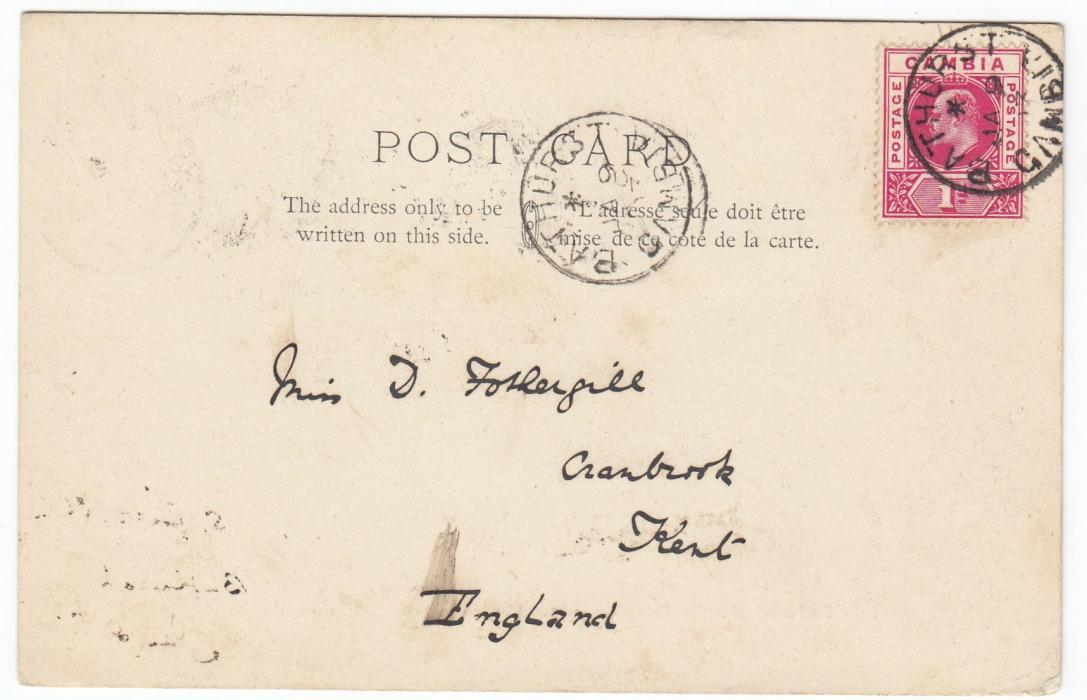 POST CARD
The address only to be
written on this side.
L'adresse seule doit être
mise de ce côté de la carte.
GAMBIA
POSTAGE
POSTAGE
1
BATHURST
GAMBIA
BATHURST
GAMBIA
Miss D. Fothergill
Cranbrook
Kent
England